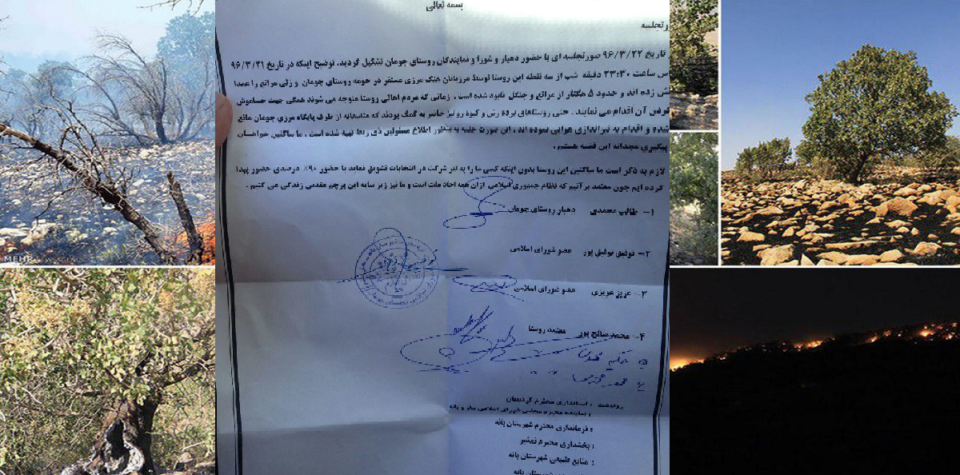 بسمه تعالی
رتجلسه
تاریخ ۹۶/۳/۲۲ صورتجلسه ای با حضور دهیار و شورا و نمایندگان روستای جومان تشکیل گردید. توضیح اینکه در تاریخ ۹۶/۳/۲۱
س ساعت ۲۳:۳۰ دقیقه شب از سه نقطه این روستا توسط مرزبانان هنگ مرزی مستقر در حومه روستای جومان و زلی مراتع را عمدا
تش زده اند و حدود ۵ هکتار از مراتع و جنگل نابود شده است. زمانی که مردم اهالی روستا متوجه می شوند همگی جهت خاموش
کردن آن اقدام می نمایند. حتی روستاهای برده رش و کیوه رو نیز حاضر به کمک بودند که متاسفانه از طرف پایگاه مرزی جومان مانع
شده و اقدام به تیراندازی هوایی نموده اند. این صورت جلسه به منظور اطلاع مسئولین ذی ربط تهیه شده است. ما ساکنین خواستان
پیگیری مجدانه این قضیه هستیم.
لازم به ذکر است ما ساکنین این روستا بدون اینکه کسی ما را به امر شرکت در انتخابات تشویق نماید با حضور ۹۰٪ درصدی حضور پیدا
کرده ایم چون معتقد بر آنیم که نظام جمهوری اسلامی از آن همه احاد ملت است و ما نیز زیر سایه این پرچم مقدس زندگی می کنیم.
۱- طالب محمدی دهیار روستای جومان
۲- توفیق توفیق پور عضو شورای اسلامی
۳- عزیز عزیزی عضو شورای اسلامی
۴- محمد صالح پور معتمد روستا
رونوشت: استانداری محترم کردستان
نماینده محترم مجلس شورای اسلامی سقز و بانه
فرمانداری محترم شهرستان بانه
بخشداری محترم نمشیر
منابع طبیعی شهرستان بانه
شهرستان بانه
MEHR